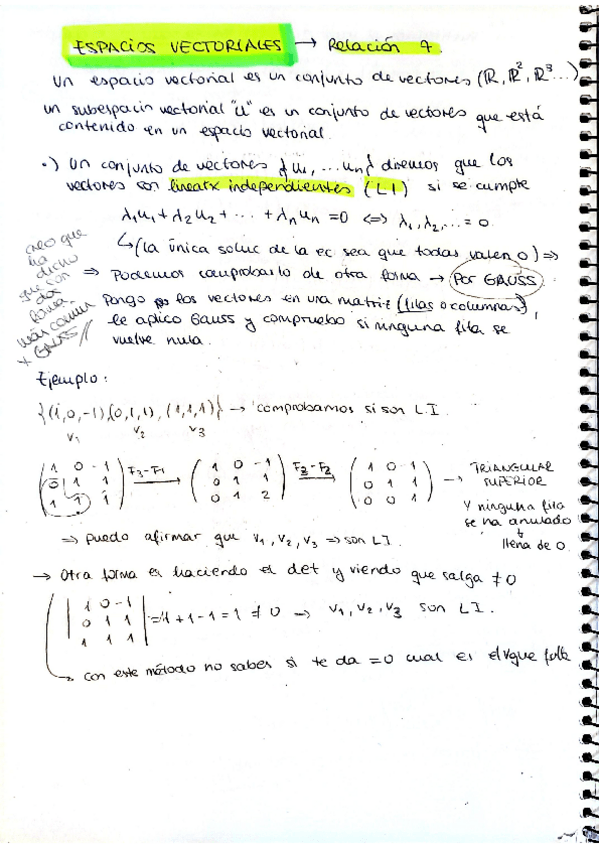 ESPACIOS VECTORIALES → Relación 4.
Un espacio vectorial es un conjunto de vectores (ℝ, ℝ², ℝ³...)
un subespacio vectorial "U" es un conjunto de vectores que está
contenido en un espacio vectorial.
•) Un conjunto de vectores {u₁, ... uₙ} diremos que los
vectores son linealx independientes (LI) si se cumple
λ₁u₁ + λ₂u₂ + ... + λₙuₙ = 0 ⟺ λ₁, λ₂, ... = 0
↳ (la única soluc de la ec sea que todas valen 0) ⇒
⇒ Podemos comprobarlo de otra forma → Por GAUSS
Pongo los vectores en una matriz (filas o columnas),
le aplico Gauss y compruebo si ninguna fila se
vuelve nula.
creo que
ha
dicho
que son
dos
forma
más común
x GAUSS //
Ejemplo:
{(1,0,-1)(0,1,1), (1,1,1)} → comprobamos si son LI.
v₁ v₂ v₃
1 0 -1
0 1 1
1 1 1
F₃-F₁
1 0 -1
0 1 1
0 1 2
F₃-F₂
1 0 -1
0 1 1
0 0 1
→ TRIANGULAR
SUPERIOR
Y ninguna fila
se ha anulado
↓
llena de 0.
⇒ puedo afirmar que v₁, v₂, v₃ ⇒ son LI.
→ Otra forma es haciendo el det y viendo que salga ≠ 0
1 0 -1
0 1 1
1 1 1
= 1 + 1 - 1 = 1 ≠ 0 → v₁, v₂, v₃ son LI.
↳ con este método no sabes si te da = 0 cual es el v que falla